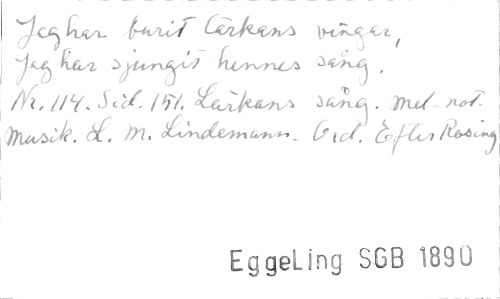 Jag har burit lärkans vingar,
Jag har sjungit hennes sång.
Nr. 114. Sid. 151. Lärkans sång. mel. not.
Musik. L. M. Lindemann. Ord. Efter Rosing
EggeLing SGB 1890